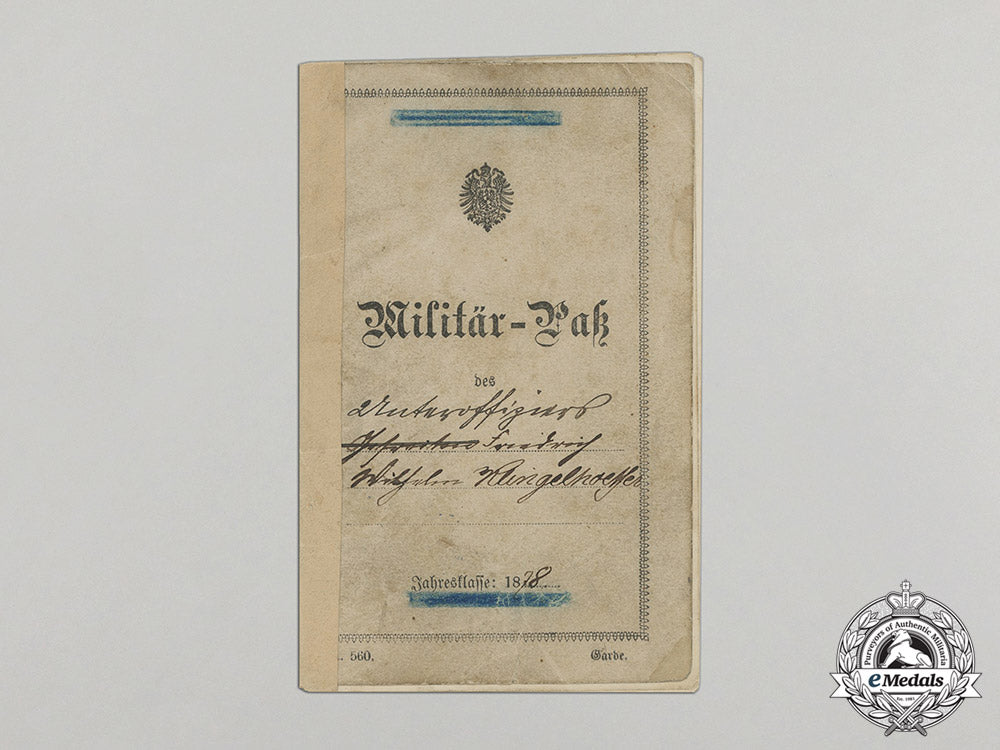 Militär-Paß
des
Unteroffiziers
Gefreiten Friedrich
Wilhelm Klingelhoeffer
Jahresklasse: 18
560.
Garde.
Purveyors of Authentic Militaria
eMedals
Est. 1981